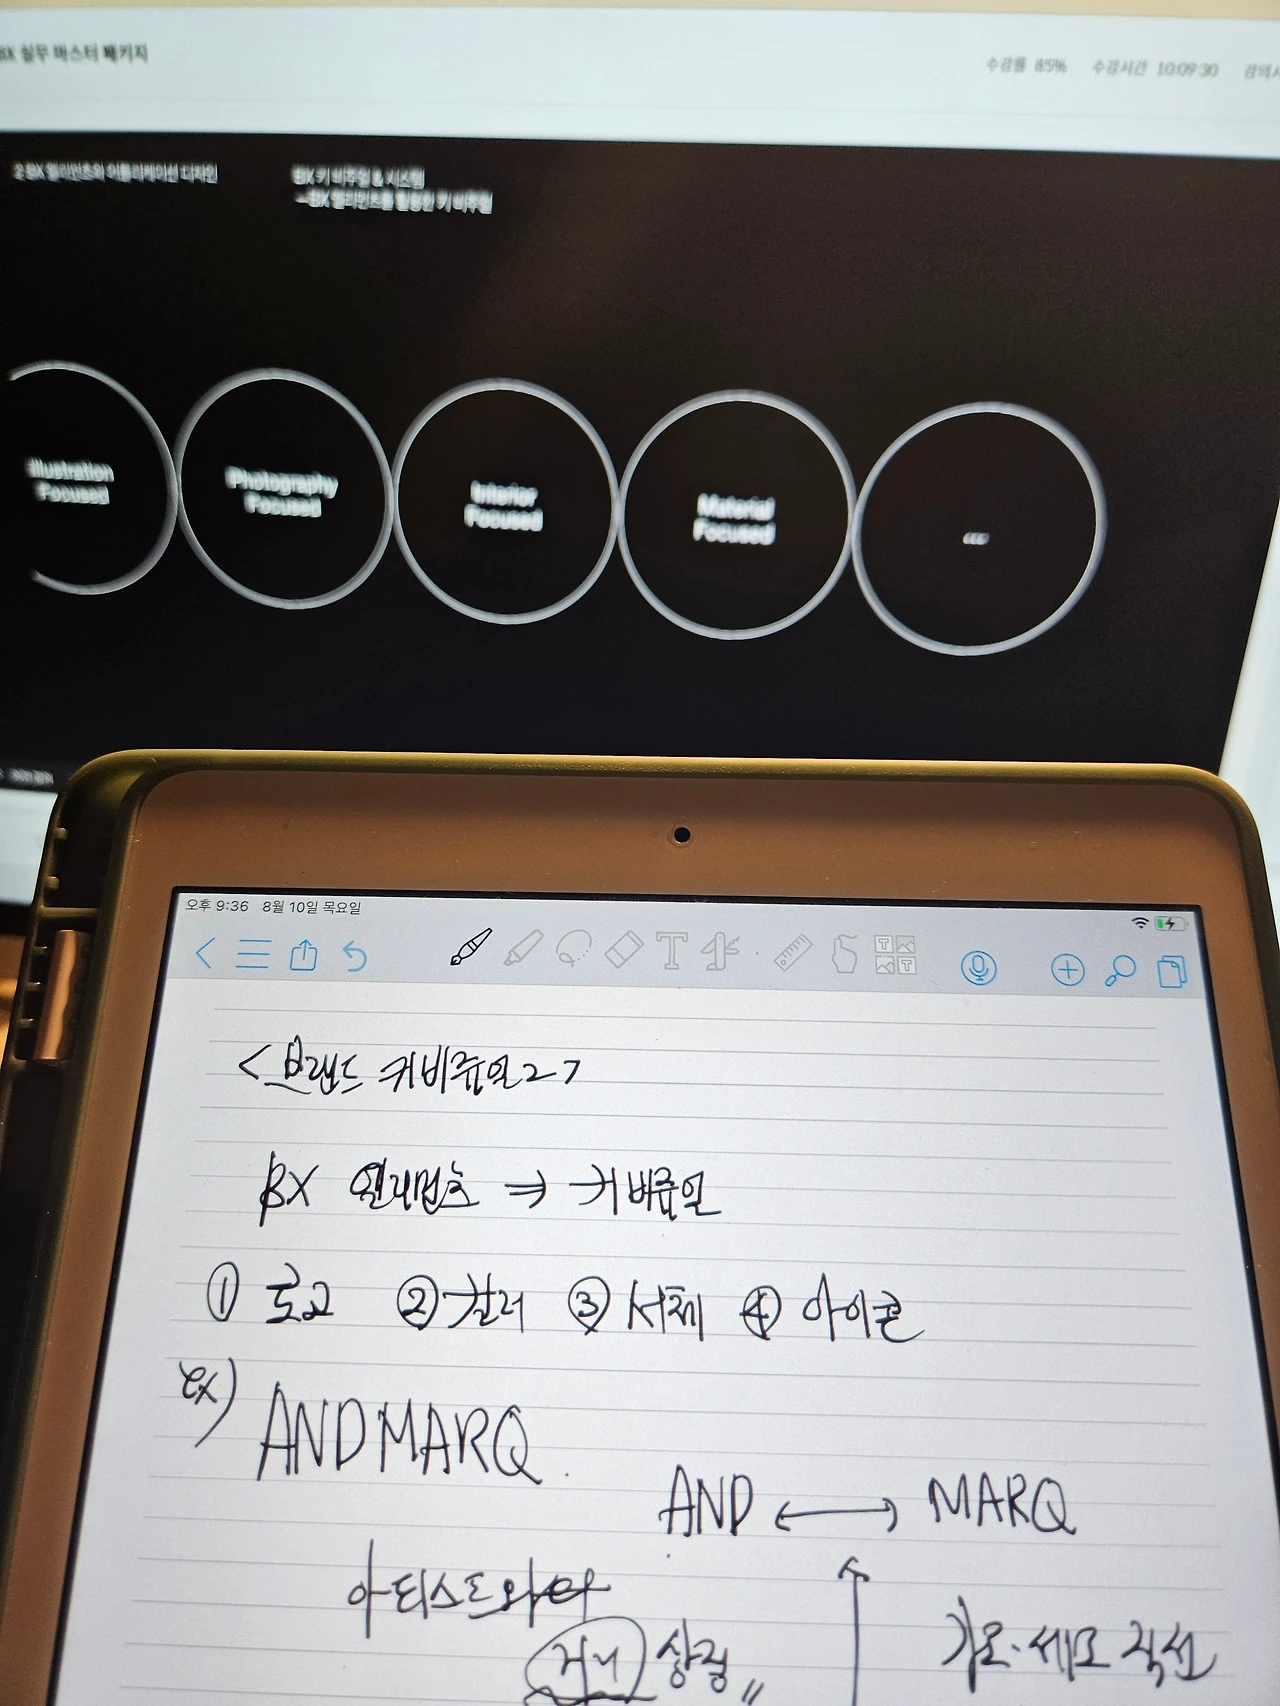 BX 실무 마스터 패키지
수강률 85% 수강시간 10:09:30 강의시
2 BX 엘리먼츠와 어플리케이션 디자인
BX 키 비주얼 & 시스템
—BX 엘리먼츠를 활용한 키 비주얼
Illustration
Focused
Photography
Focused
Interior
Focused
Material
Focused
오후 9:36 8월 10일 목요일
<브랜드 키비쥬얼2>
BX 엘리먼츠 ⇒ 키비쥬얼
① 로고 ② 컬러 ③ 서체 ④ 아이콘
ex) ANDMARQ
AND ↔ MARQ
아티스트와
거리 상징 〃
가로·세로 직선